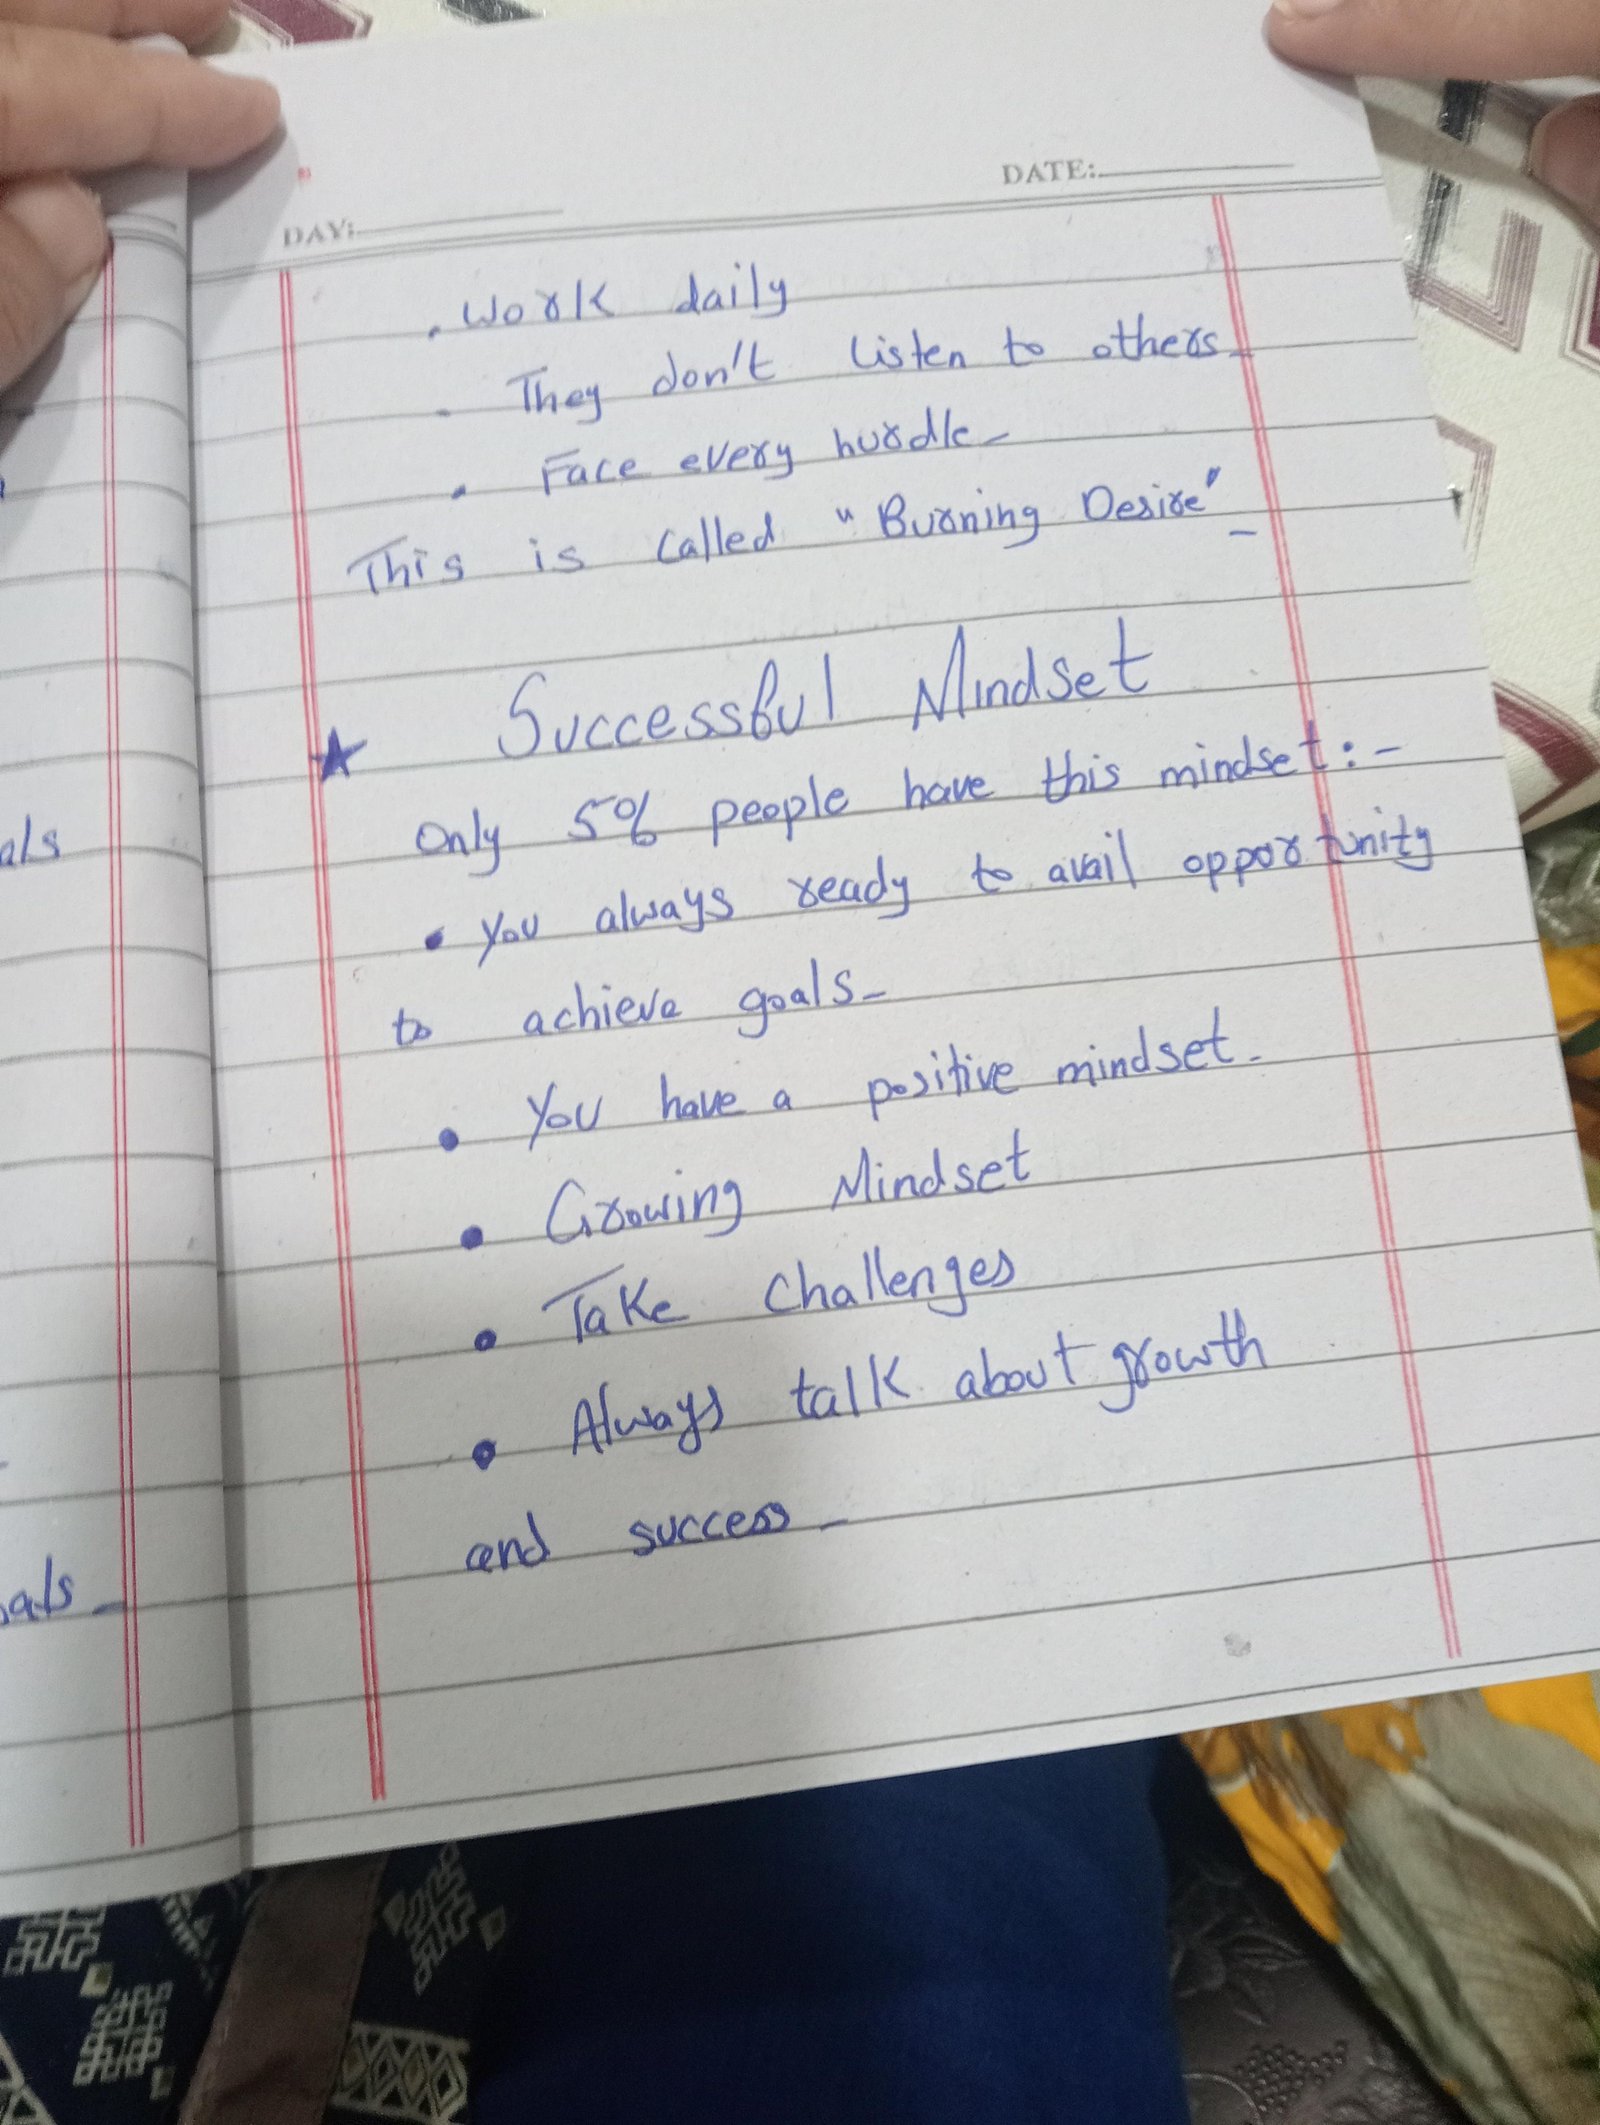 DATE:
DAY:
. Work daily
. They don't listen to others-
. Face every hurdle-
This is called "Burning Desire"-
★ Successful Mindset
Only 5% people have this mindset:-
• You always ready to avail opportunity
to achieve goals-
• You have a positive mindset-
• Growing Mindset
• Take Challenges
• Always talk about growth
and success-